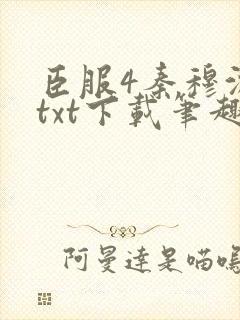 臣服4秦穆
txt下載筆趣
阿曼達是喵嗚